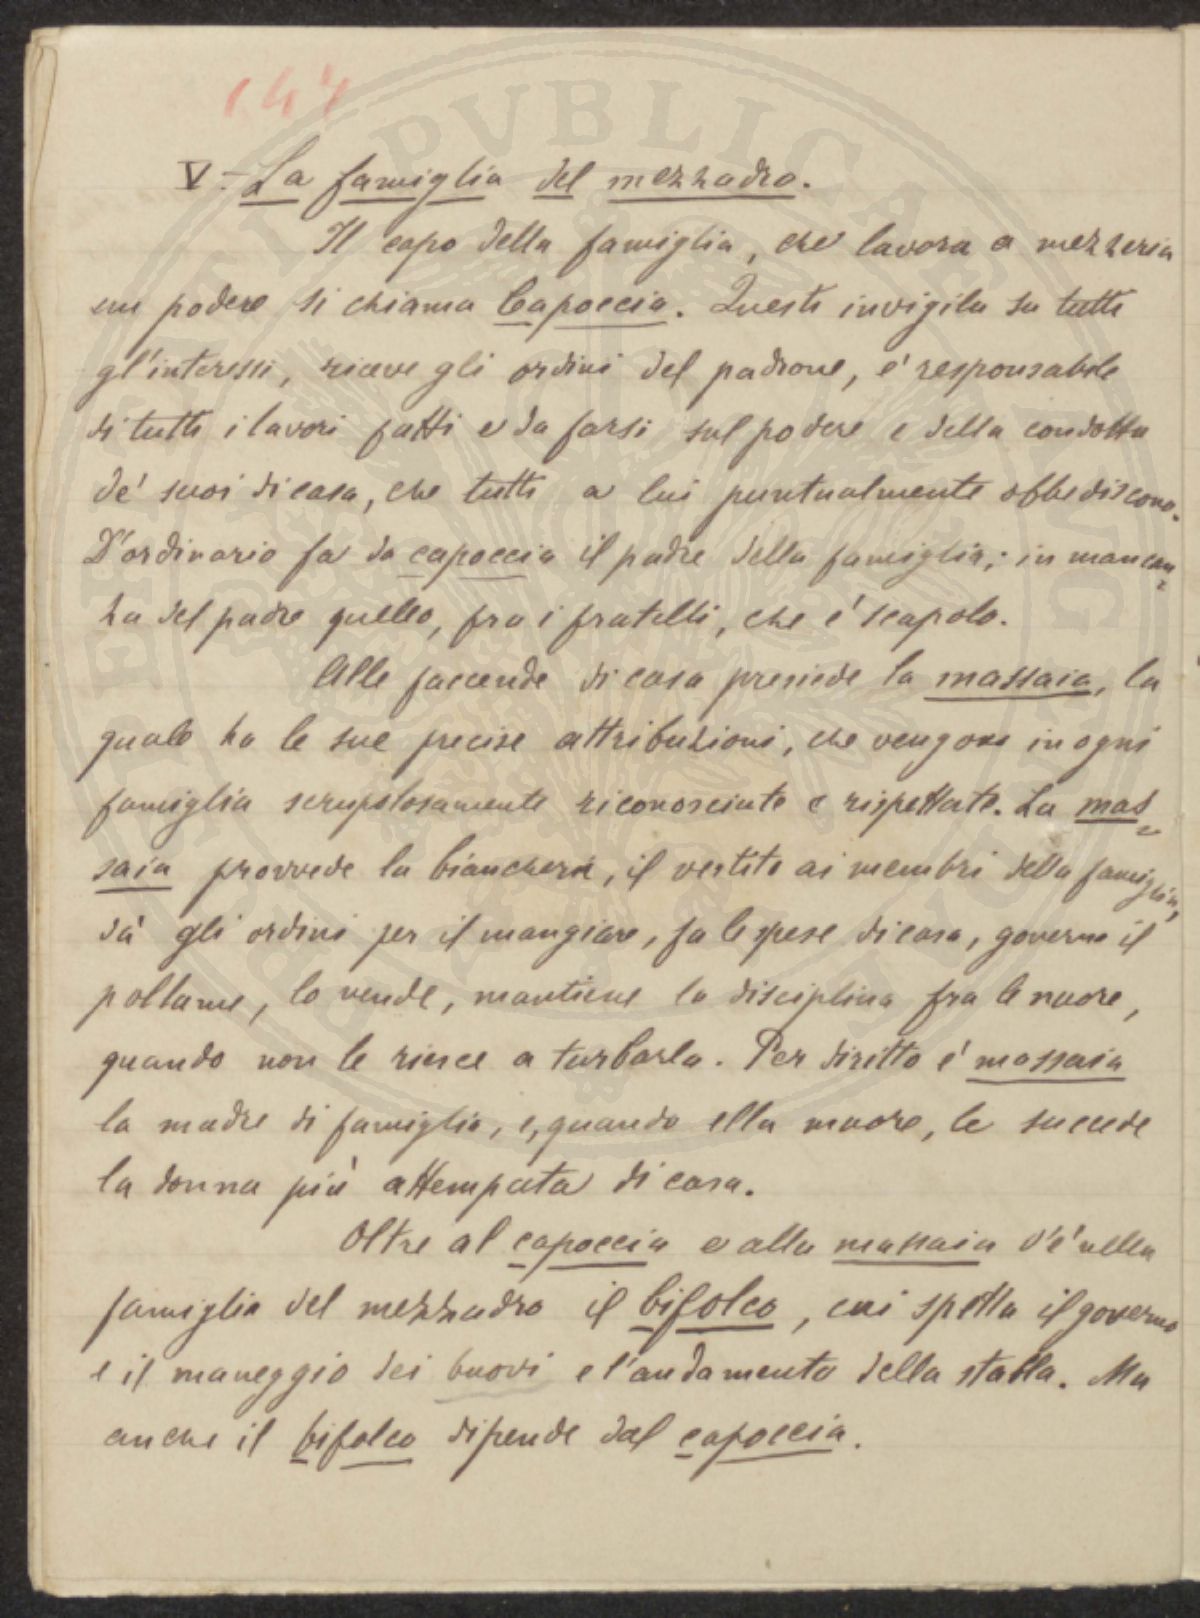 147
V.- La famiglia del mezzadro.
Il capo della famiglia, che lavora a mezzeria
un podere si chiama Capoccia. Questi invigila su tutti
gl'interessi, riceve gli ordini del padrone, è responsabile
di tutti i lavori fatti e da farsi sul podere e della condotta
de' suoi di casa, che tutti a lui puntualmente obbediscono.
D'ordinario fa da capoccia il padre della famiglia; in mancan=
za del padre quello, fra i fratelli, che è scapolo.
Alle faccende di casa presiede la massaia, la
quale ha le sue precise attribuzioni, che vengono in ogni
famiglia scrupolosamente riconosciute e rispettate. La mas=
saia provvede la biancheria, il vestito ai membri della famiglia,
dà gli ordini per il mangiare, fa le spese di casa, governa il
pollame, lo vende, mantiene la disciplina fra le nuore,
quando non le riesce a turbarla. Per diritto è massaia
la madre di famiglia, e, quando ella muore, le succede
la donna più attempata di casa.
Oltre al capoccia e alla massaia v'è nella
famiglia del mezzadro il bifolco, cui spetta il governo
e il maneggio dei buovi e l'andamento della stalla. Ma
anche il bifolco dipende dal capoccia.